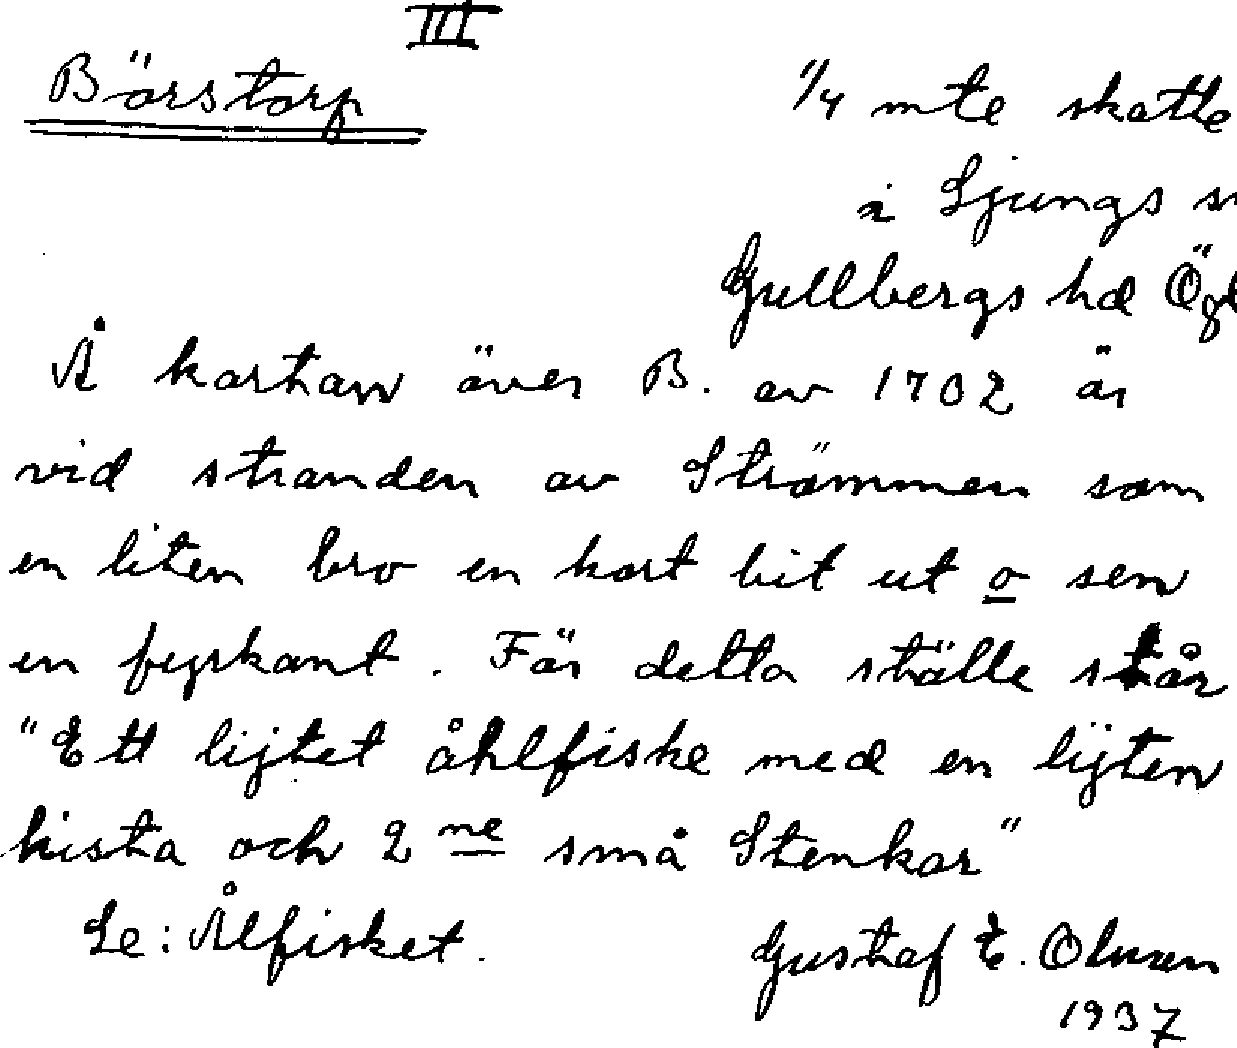 III
Börstorp 1/4 mte skatte
i Ljungs
Gullbergs hd Ögl
Å kartan över B. av 1702 är
vid stranden av Strömmen som
en liten bro en kort bit ut o sen
en fyrkant. För detta ställe står
"Ett lijtet åhlfiske med en lijten
kista och 2 ne små Stenkar"
Se: Ålfisket. Gustaf E. Olsson
1937